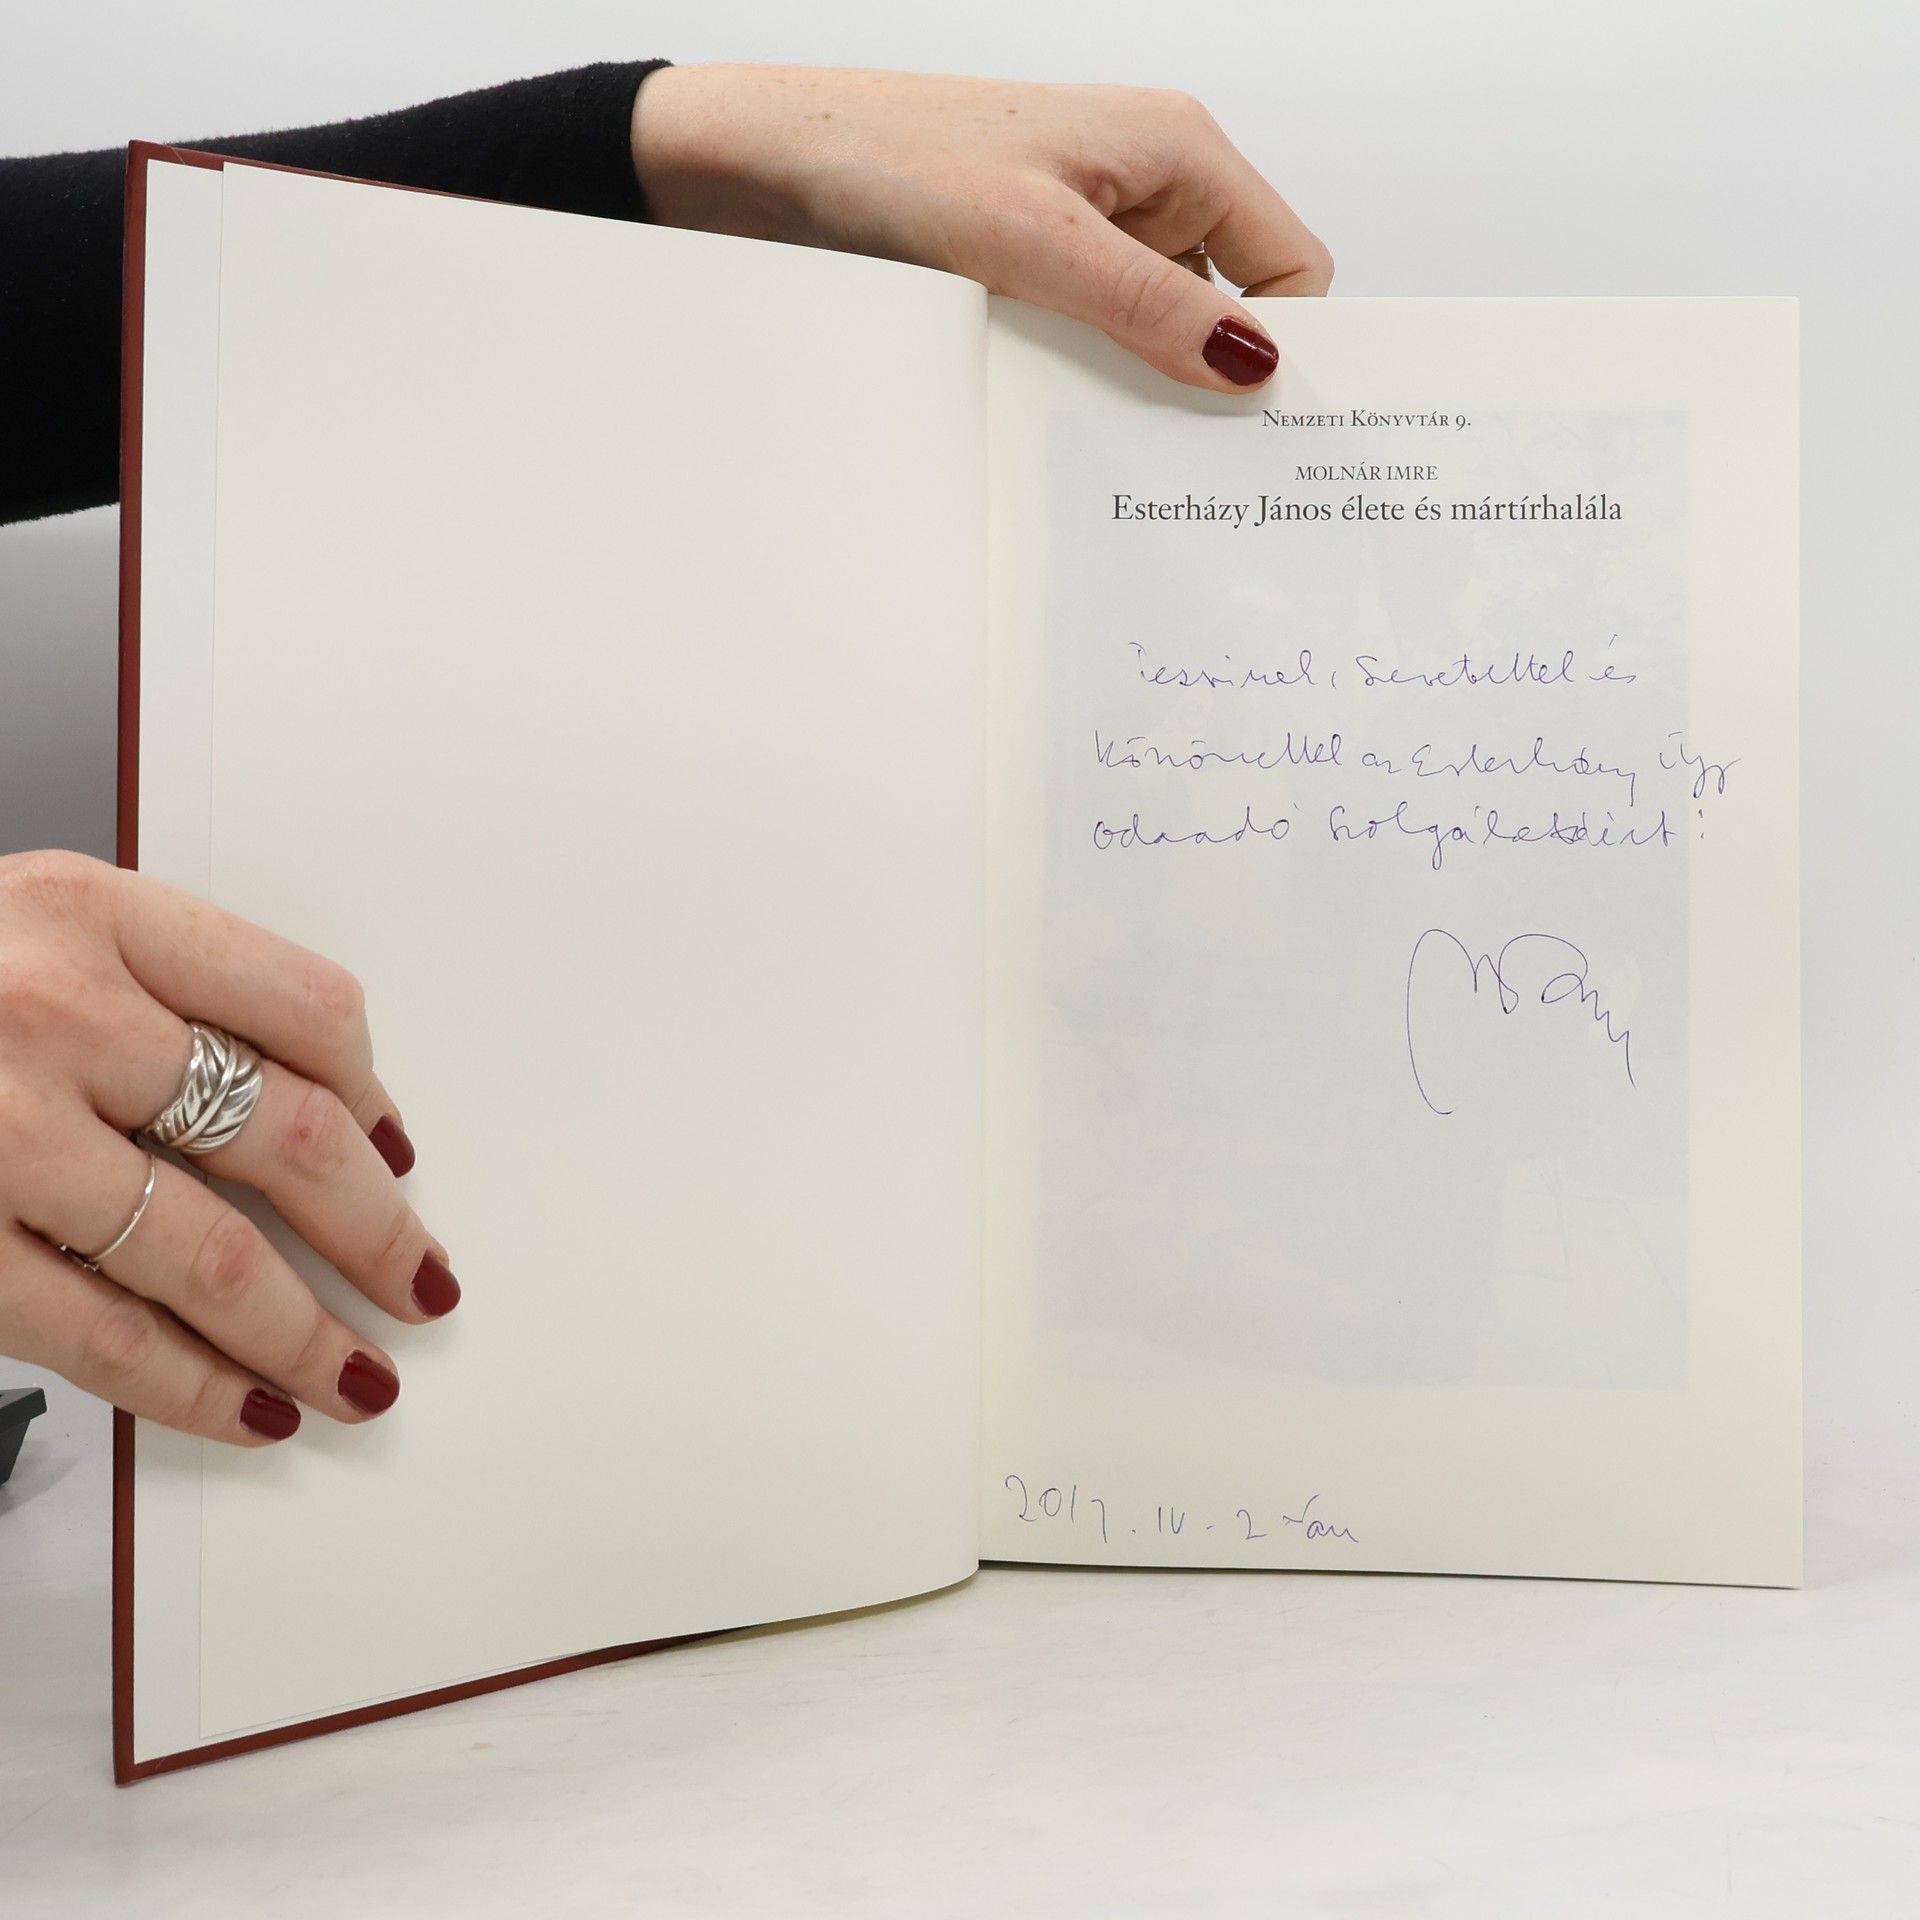 Nemzeti Könyvtár 9.
MOLNÁR IMRE
Esterházy János élete és mártírhalála
szeretettel és
köszönettel az Esterházy ügy
odaadó szolgálatáért!
2017. IV. 2-án